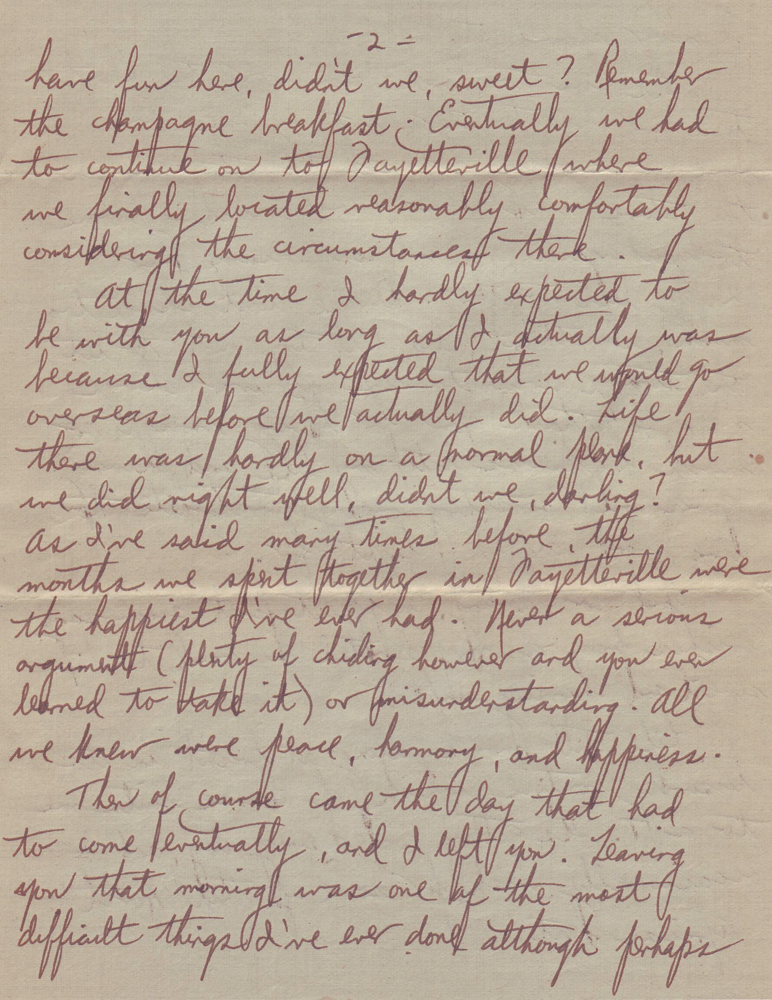 -2-
have fun here, didn't we, sweet? Remember
the champagne breakfast. Eventually we had
to continue on to Fayetteville where
we finally located reasonably comfortably
considering the circumstances there.
At the time I hardly expected to
be with you as long as I actually was
because I fully expected that we would go
overseas before we actually did. Life
there was hardly on a normal plane, but
we did right well, didn't we, darling?
As I've said many times before, the
months we spent together in Fayetteville were
the happiest I've ever had. Never a serious
argument (plenty of chiding however and you even
learned to take it) or misunderstanding. All
we knew were peace, harmony, and happiness.
Then of course came the day that had
to come eventually, and I left you. Leaving
you that morning was one of the most
difficult things I've ever done although perhaps